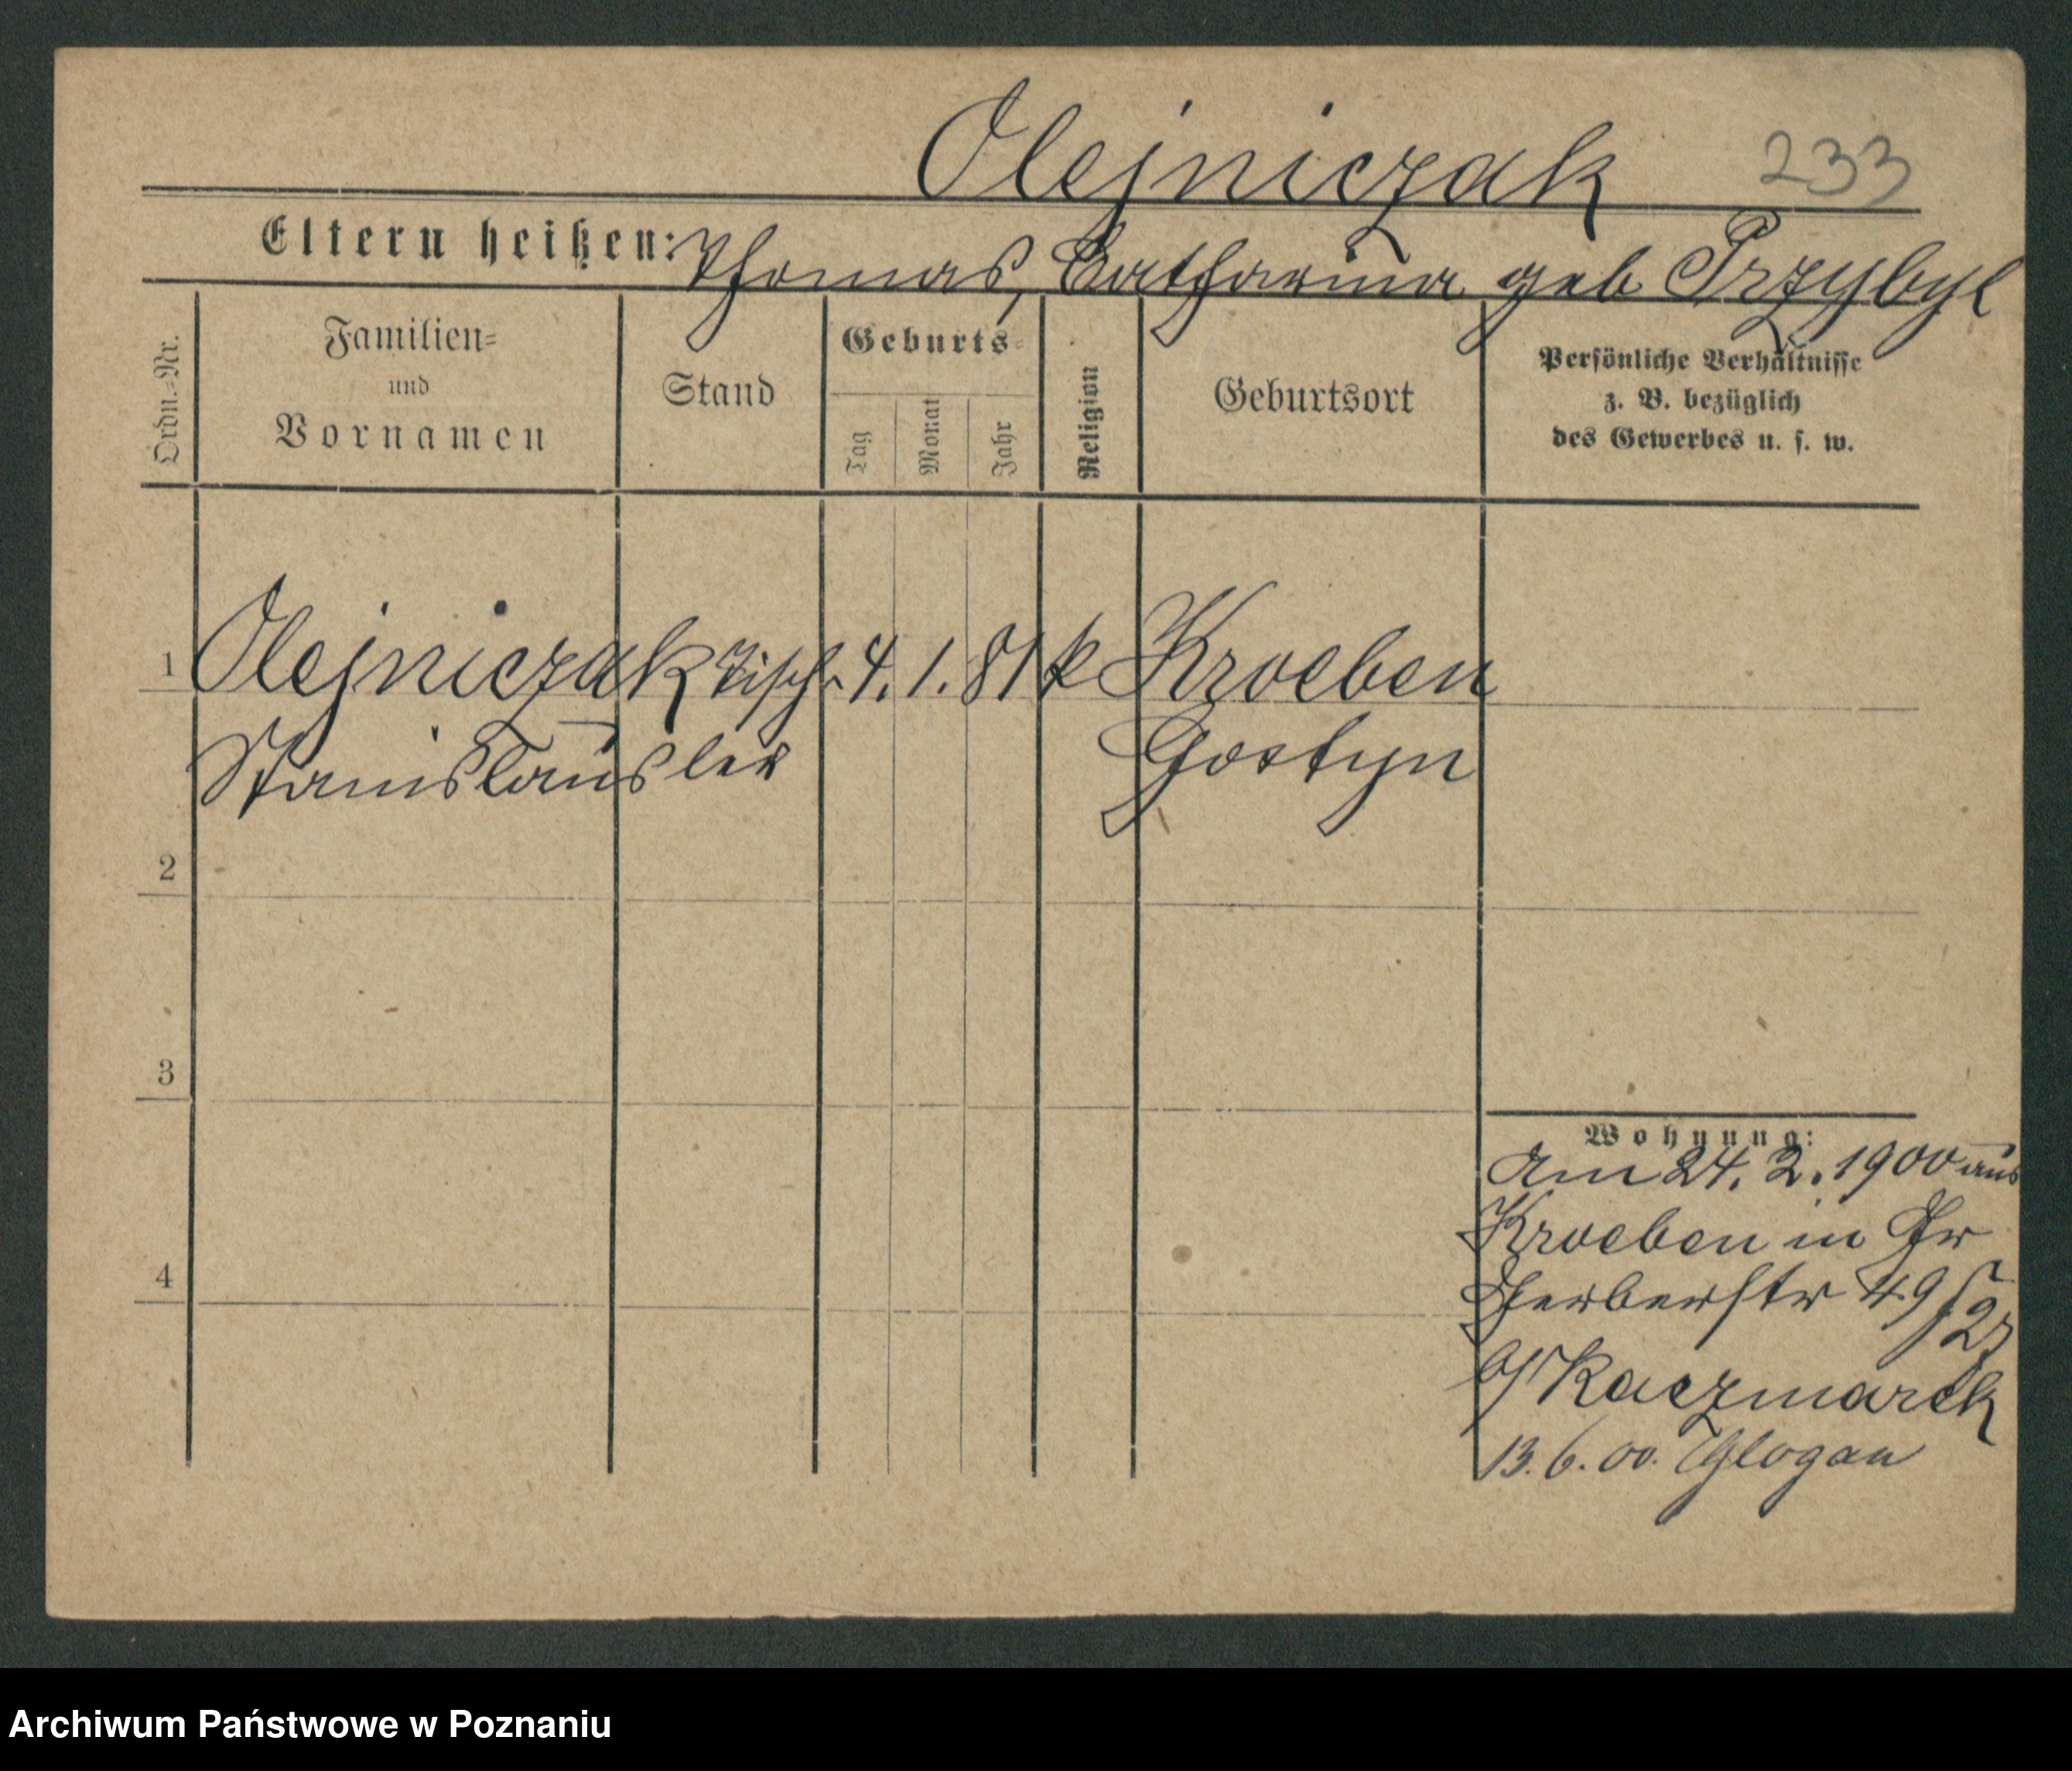 Olejniczak 233
Eltern heißen: Thomas, Catharina geb Przybyl
Ordn.=Nr.
Familien=
und
Vornamen
Stand
Geburts=
Tag
Monat
Jahr
Religion
Geburtsort
Persönliche Verhältnisse
z. B. bezüglich
des Gewerbes u. s. w.
1 Olejniczak Tisch- 4. 1. 81 k Kroeben
Stanislaus ler Gostyn
2
3
4
Wohnung:
Am 24. 2. 1900 aus
Kroeben in
Gerberstr 49
b/ Kaczmarek
13. 6. 00. Glogau
Archiwum Państwowe w Poznaniu